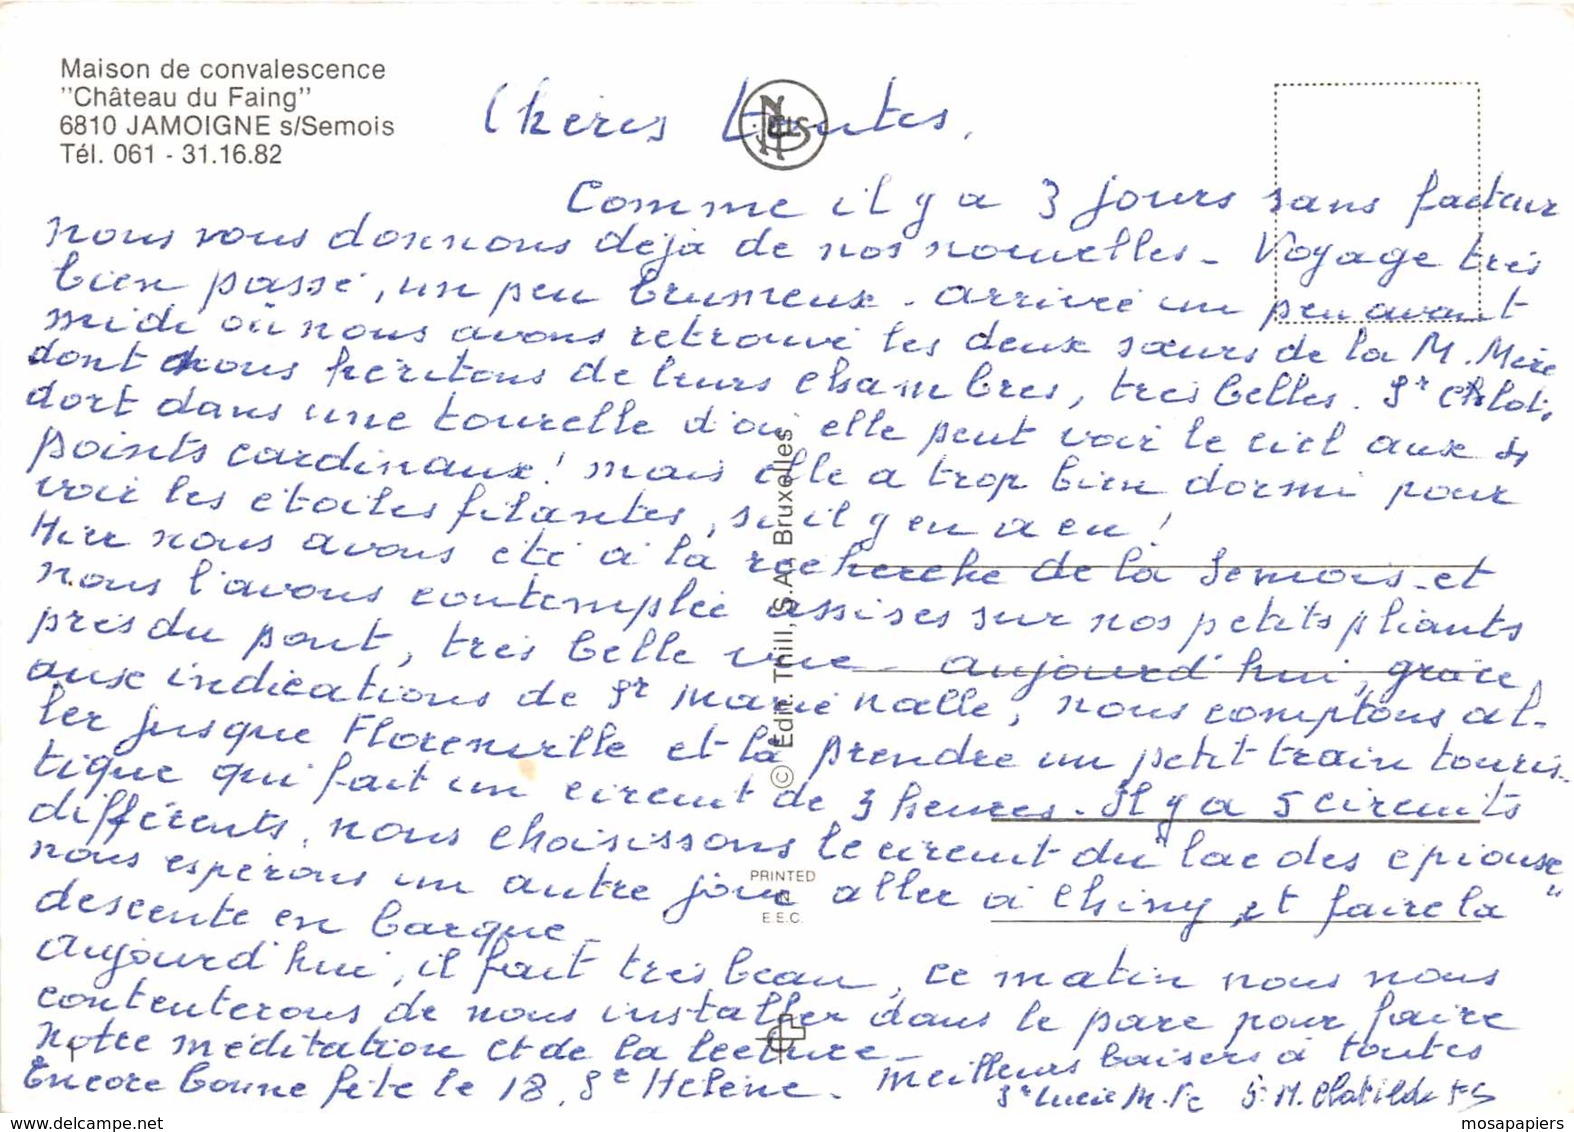 Maison de convalescence
"Château du Faing"
6810 JAMOIGNE s/Semois
Tél. 061 - 31.16.82
NELS
Chères toutes,
Comme il y a 3 jours sans facteur
nous vous donnons déjà de nos nouvelles - Voyage très
bien passé, un peu brumeux - arrivé un peu avant
midi où nous avons retrouvé les deux sœurs de la M. Mère
dont nous héritons de leurs chambres, très belles. Sr Clot.
dort dans une tourelle d'où elle peut voir le ciel aux 4
points cardinaux! mais elle a trop bien dormi pour
voir les étoiles filantes, s'il y en a eu!
Hier nous avons été à la recherche de la Semois - et
nous l'avons contemplée assises sur nos petits pliants
près du pont, très belle vue - aujourd'hui, grâce
aux indications de Sr Marie Nalle, nous comptons al-
ler jusque Florenville et là prendre un petit train touris-
tique qui fait un circuit de 3 heures. Il y a 5 circuits
différents, nous choisissons le circuit du "lac des épiouse"
nous espérons un autre jour aller à Chiny et faire la
descente en barque -
Aujourd'hui, il fait très beau, ce matin nous nous
contenterons de nous installer dans le parc pour faire
notre méditation et de la lecture -
Meilleurs baisers à toutes
Encore bonne fête le 18, Sr Hélène.
Sr Lucie M. Sr M. Clotilde
© Edit. Thill, S.A., Bruxelles
PRINTED
E.E.C.
mosapapiers
www.delcampe.net